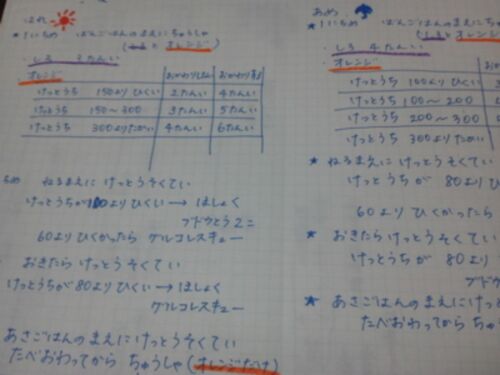 はれ
★1にちめ ばんごはんのまえにちゅうしゃ
(しろとオレンジ)
・しろ 3たんい
オレンジ
おかわりなし おかわりあり
けっとうち 150よりひくい 2たんい 4たんい
けっとうち 150～300 3たんい 5たんい
けっとうち 300よりたかい 4たんい 6たんい
ねるまえに けっとうそくてい
けっとうちが100よりひくい→ほしょく
ブドウとう2こ
60よりひくかったら グルコレスキュー
おきたら けっとうそくてい
けっとうちが80よりひくい→ほしょく
グルコレスキュー
あさごはんのまえにけっとうそくてい
たべおわってから ちゅうしゃ(オレンジだけ)
あめ
★1にちめ ばんごはんのまえにち
(しろとオレンジ
・しろ 4たんい
オレンジ
けっとうち 100よりひくい
けっとうち 100～200
けっとうち 200～300
けっとうち 300よりたかい
★ ねるまえに けっとうそくて
けっとうちが 80よりひ
60より ひくかったら
★ おきたら けっとうそくてい
けっとうちが 80より
ブドウ
★ あさごはんのまえにけっと
たべおわってから ちゅ